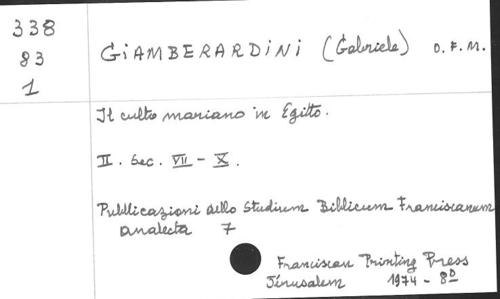 338
83
1
GIAMBERARDINI (Gabriele) O.F.M.
Il culto mariano in Egitto.
II. Sec. VII - X.
Pubblicazioni dello Studium Biblicum Franciscanum
analecta 7
Franciscan Printing Press
Jérusalem 1974 - 8º